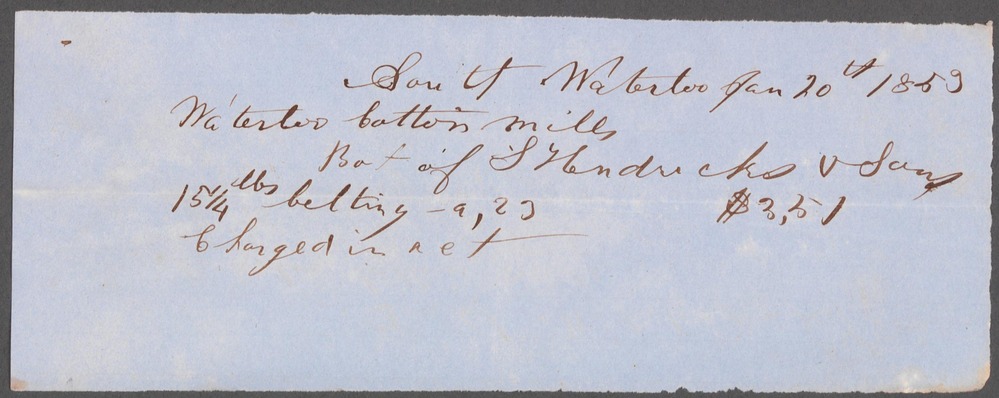 South Waterloo Jan 20th 1859
Waterloo Cotton mills
Bot of S Hendricks & Sons
15 1/4 lbs belting - a, 23 $3,51
Charged in act